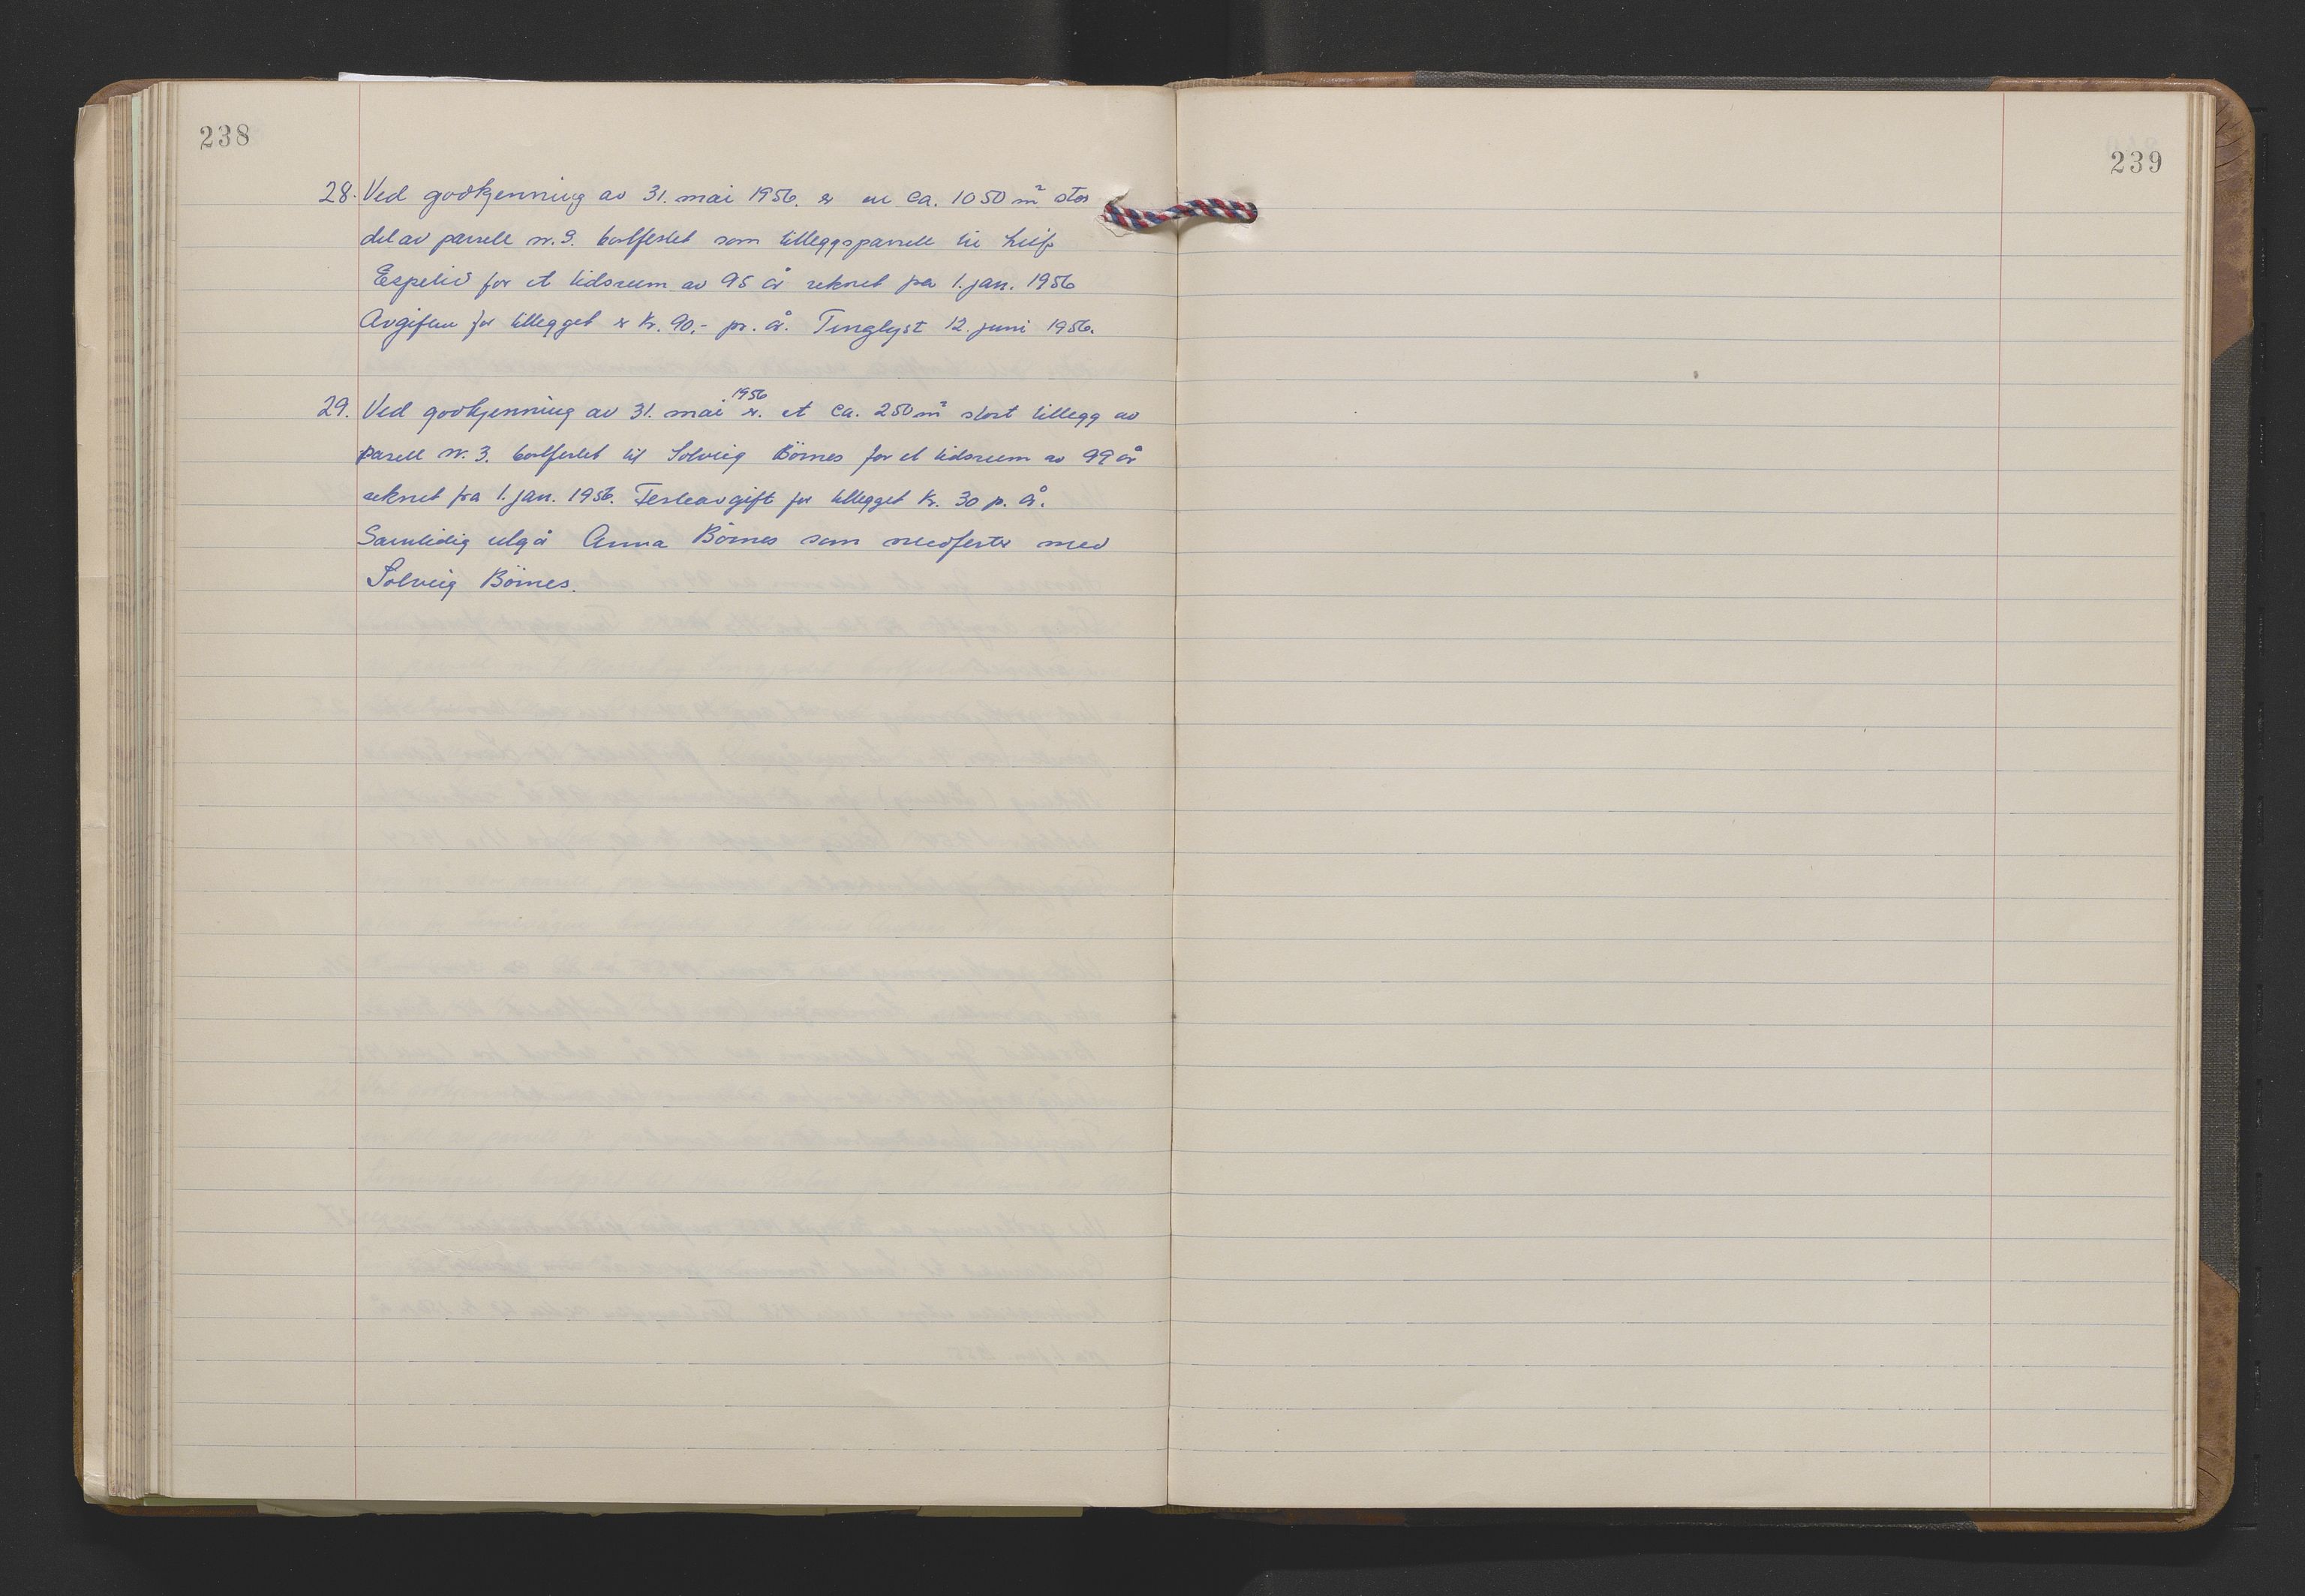 238
239
28. Ved godkjenning av 31. mai 1956. er en ca. 1050 m² stor
del av parsell nr. 9. bortfestet som tilleggsparsell til Leif
Espelid for et tidsrum av 95 år reknet fra 1. jan. 1956
Avgiften for tillegget er kr. 90,- pr. år. Tinglyst 12. juni 1956.
29. Ved godkjenning av 31. mai 1956 er. et ca. 250 m² stort tillegg av
parsell nr. 3. bortfestet til Solveig Börnes for et tidsrum av 99 år
reknet fra 1. jan. 1956. Festeavgift for tillegget kr. 30 p. år.
Samtidig utgår Anna Börnes som medfester med
Solveig Börnes.